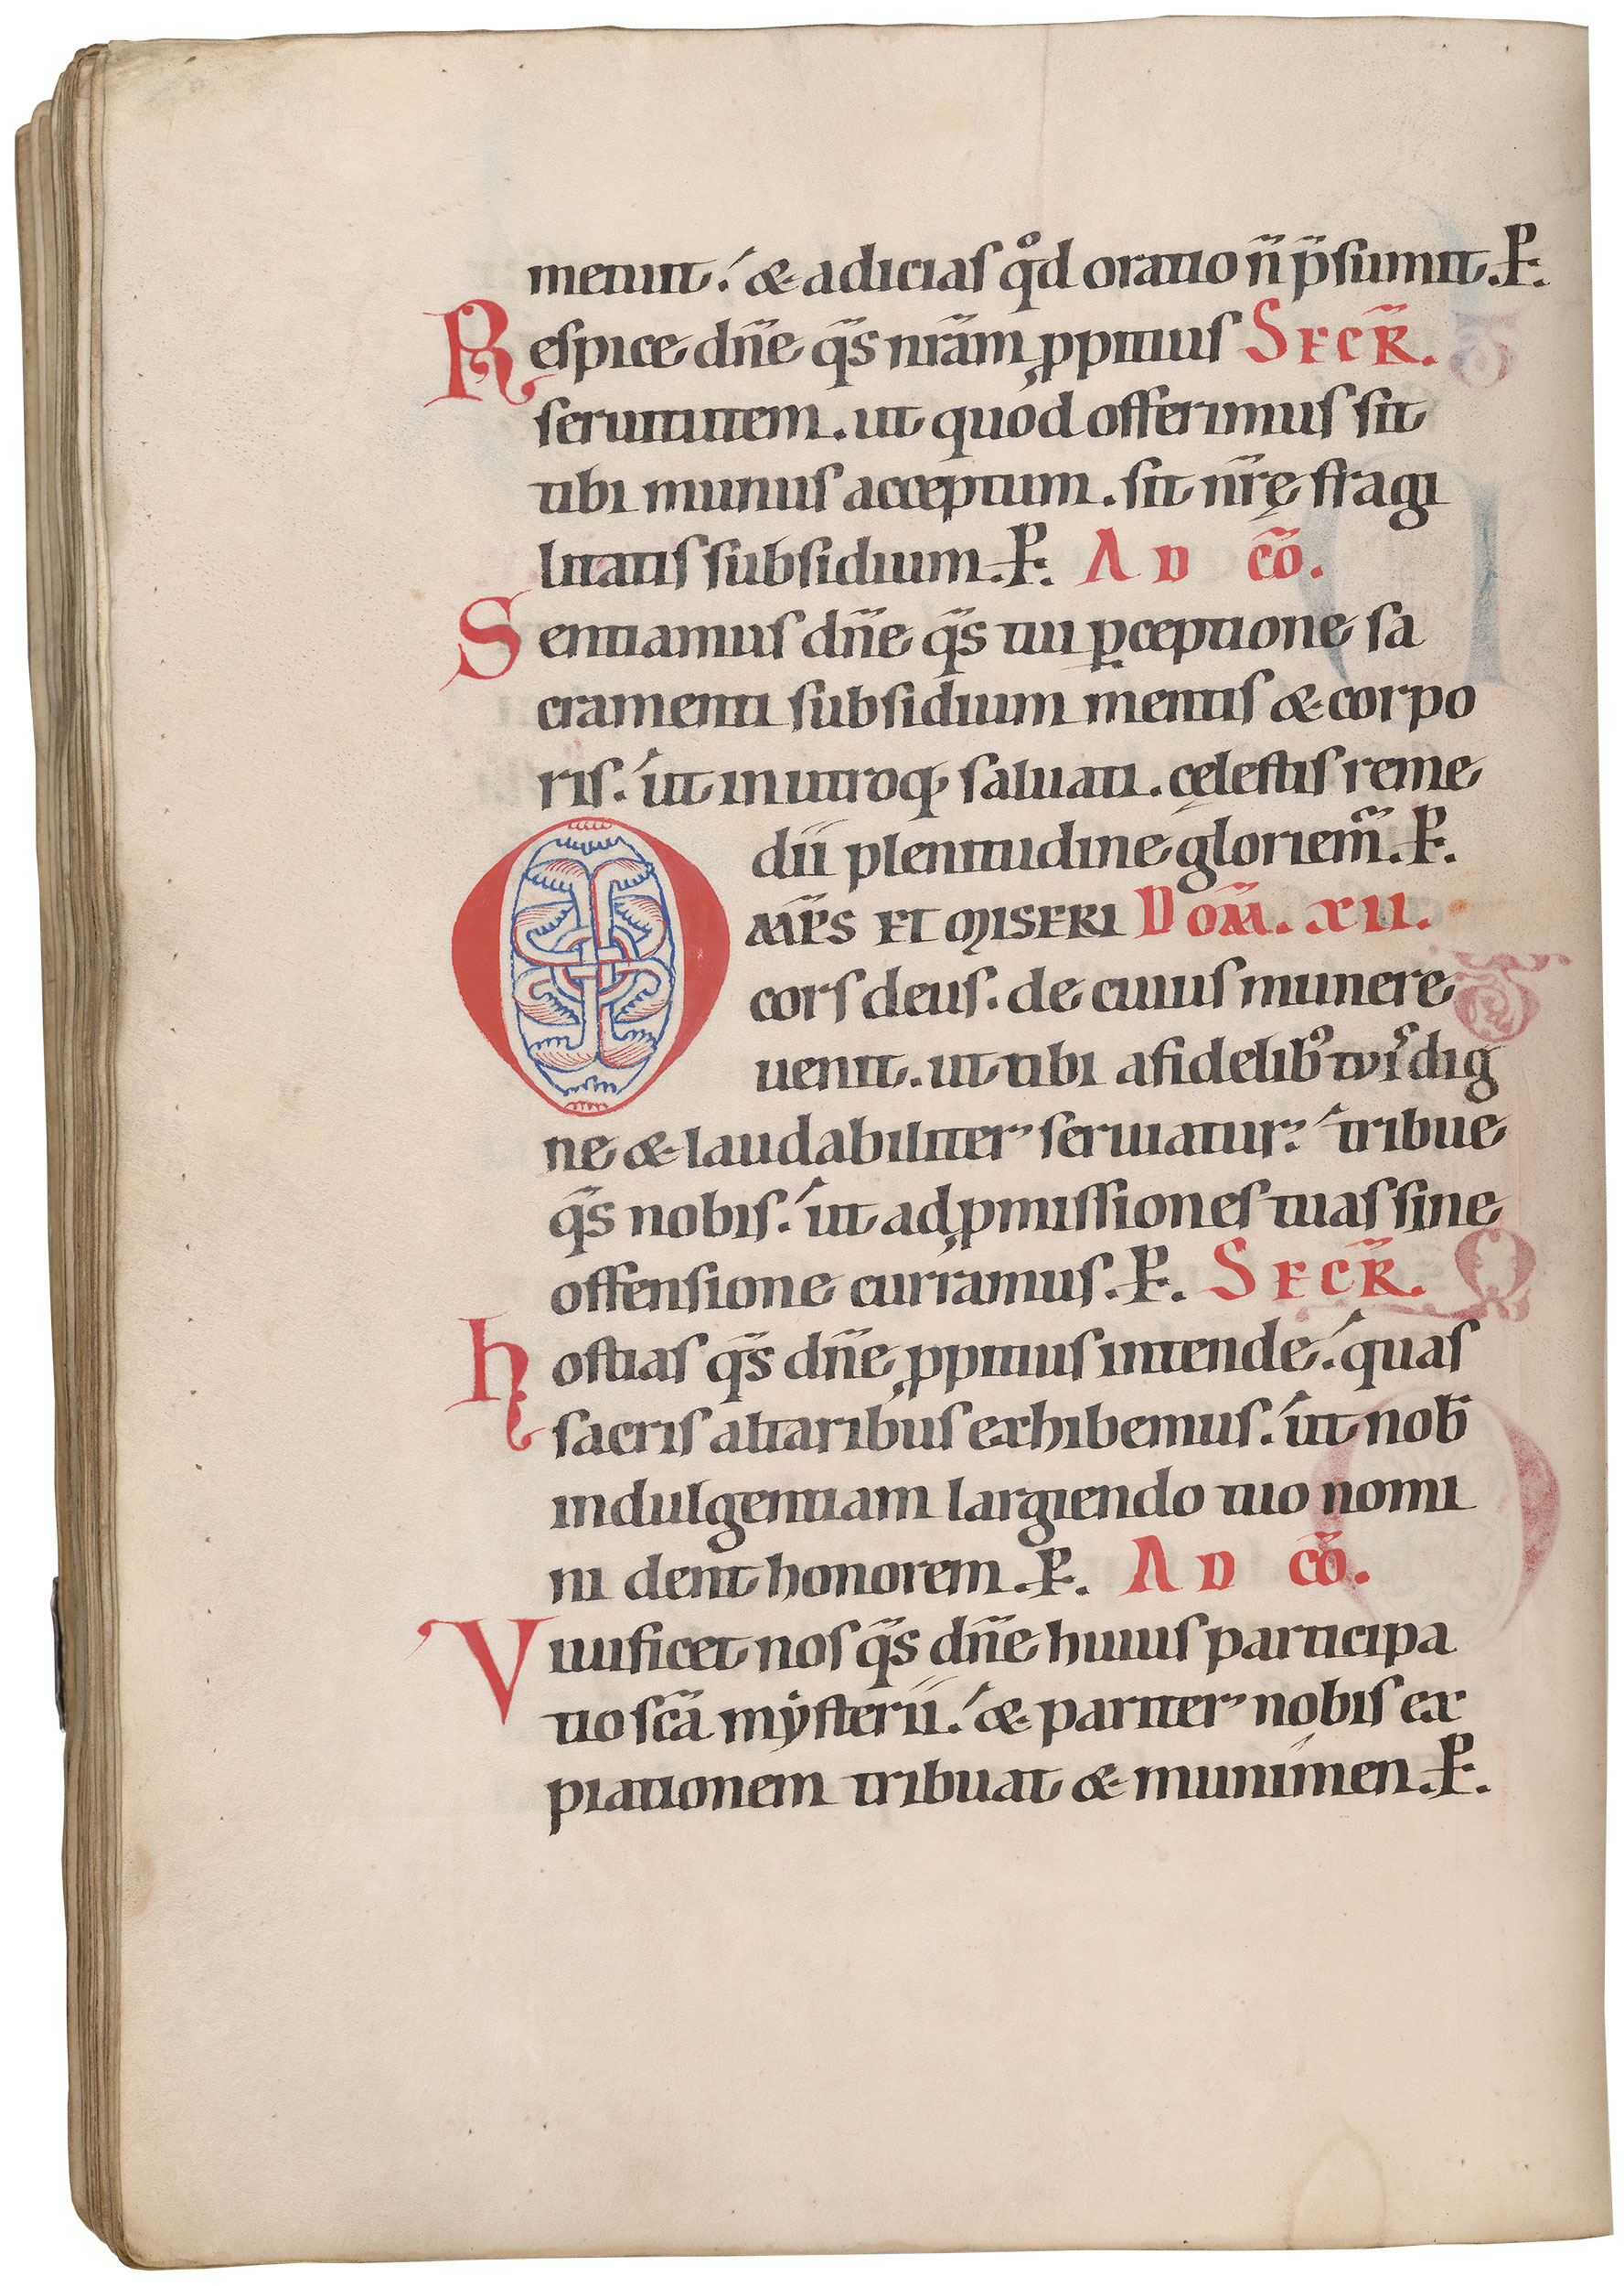 metuit. & adicias qͦd oratio n̄ p̄sumit. P.
Respice dn̄e qs̄ nrām ꝓpitius SECR̄.
seruitutem. ut quod offerimus sit
tibi munus acceptum. sit nr̄ę fragi
litatis subsidium. P. AD cō.
Sentiamus dn̄e qs̄ tui ꝑceptione sa
cramenti subsidium mentis & corpo
ris. ut in utroq; saluati. cęlestis reme
dii plenitudine gloriem̄. P.
OMP̄S ET MISERI DOM̄. XII.
cors deus. de cuius munere
uenit. ut tibi a fidelibꝰ tuiſ dig
ne & laudabiliter seruiatur: tribue
qs̄ nobis. ut ad ꝓmissiones tuas sine
offensione curramus. P. SECR̄.
Hostias qs̄ dn̄e ꝓpitius intende. quas
sacris altaribus exhibemus. ut nob̄
indulgentiam largiendo tuo nomi
ni dent honorem. P. AD cō.
Viuificet nos qs̄ dn̄e huius participa
tio sc̄a mẏsterii. & pariter nobis ex
piationem tribuat & munimen. P.